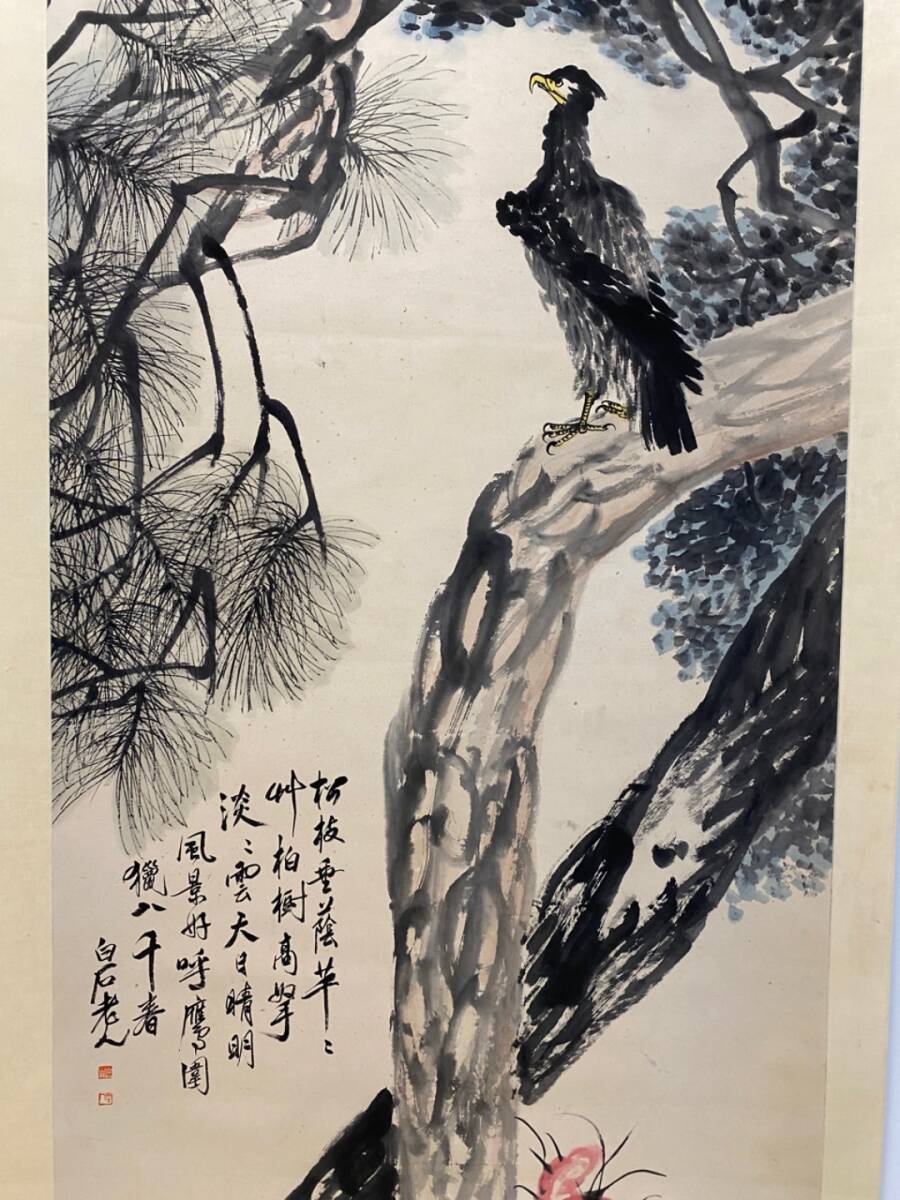 松枝垂蔭草〻
艸柏樹高拏
淡〻雲天日晴明
風景好呼鷹圍
獵八千春
白石老人